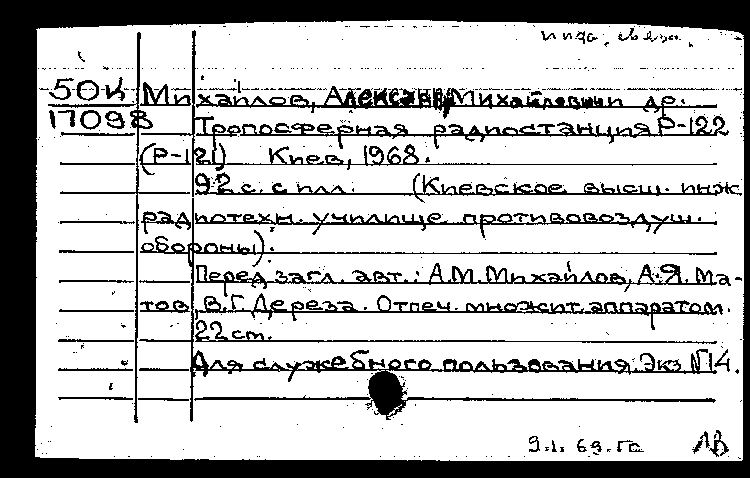 50К Михайлов, Александр Михайлович и др.
17098 Тропосферная радиостанция Р-122
(Р-121) Киев, 1968.
92 с. с илл. (Киевское высш. инж.
радиотехн. училище противовоздуш.
обороны).
Перед загл. авт.: А.М. Михайлов, А.Я. Ма-
тов, В.Г. Дереза. Отпеч. множит. аппаратом.
22 см.
Для служебного пользования. Экз. №14.
9.1.69.